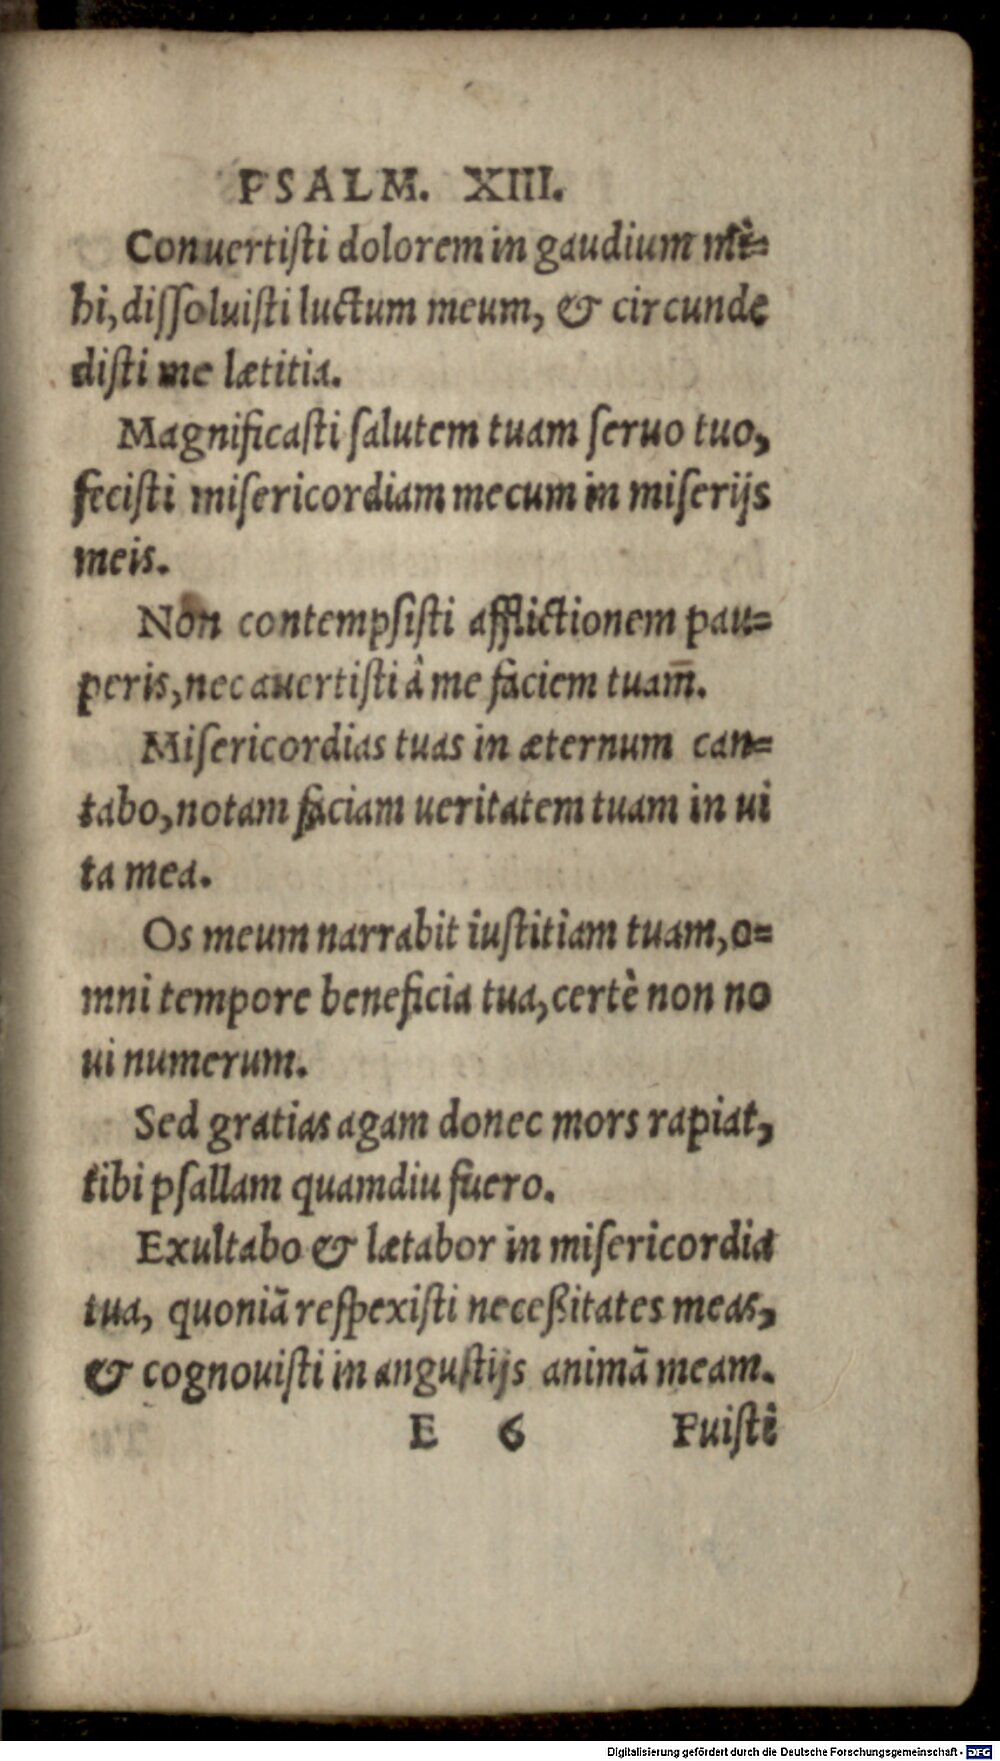 PSALM. XIII.
Conuertiſti dolorem in gaudium mi=
hi, diſſoluiſti luctum meum, & circunde
diſti me lætitia.
Magnificaſti ſalutem tuam ſeruo tuo,
feciſti miſericordiam mecum in miſerijs
meis.
Non contempſiſti afflictionem pau=
peris, nec auertiſti à me faciem tuam̄.
Miſericordias tuas in æternum can=
tabo, notam faciam ueritatem tuam in ui
ta mea.
Os meum narrabit iuſtitiam tuam, o=
mni tempore beneficia tua, certè non no
ui numerum.
Sed gratias agam donec mors rapiat,
tibi pſallam quamdiu fuero.
Exultabo & lætabor in miſericordia
tua, quoniā reſpexiſti neceßitates meas,
& cognouiſti in anguſtijs animā meam.
E 6 Fuiſti
Digitalisierung gefördert durch die Deutsche Forschungsgemeinschaft - DFG